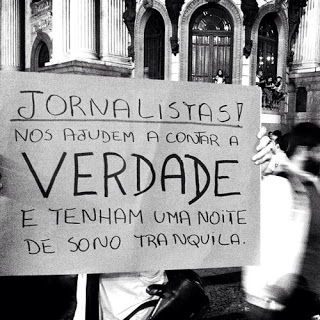 JORNALISTAS!
NOS AJUDEM A CONTAR A
VERDADE
E TENHAM UMA NOITE
DE SONO TRANQUILA.